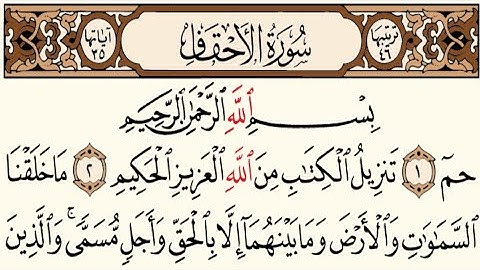 ترتيبها ٤٦ سُورَةُ الأَحْقَافِ آيَاتُهَا ٣٥
بِسْمِ ٱللَّهِ ٱلرَّحْمَٰنِ ٱلرَّحِيمِ
حمٓ ١ تَنزِيلُ ٱلْكِتَٰبِ مِنَ ٱللَّهِ ٱلْعَزِيزِ ٱلْحَكِيمِ ٢ مَا خَلَقْنَا
ٱلسَّمَٰوَٰتِ وَٱلْأَرْضَ وَمَا بَيْنَهُمَآ إِلَّا بِٱلْحَقِّ وَأَجَلٍ مُّسَمًّى ۚ وَٱلَّذِينَ